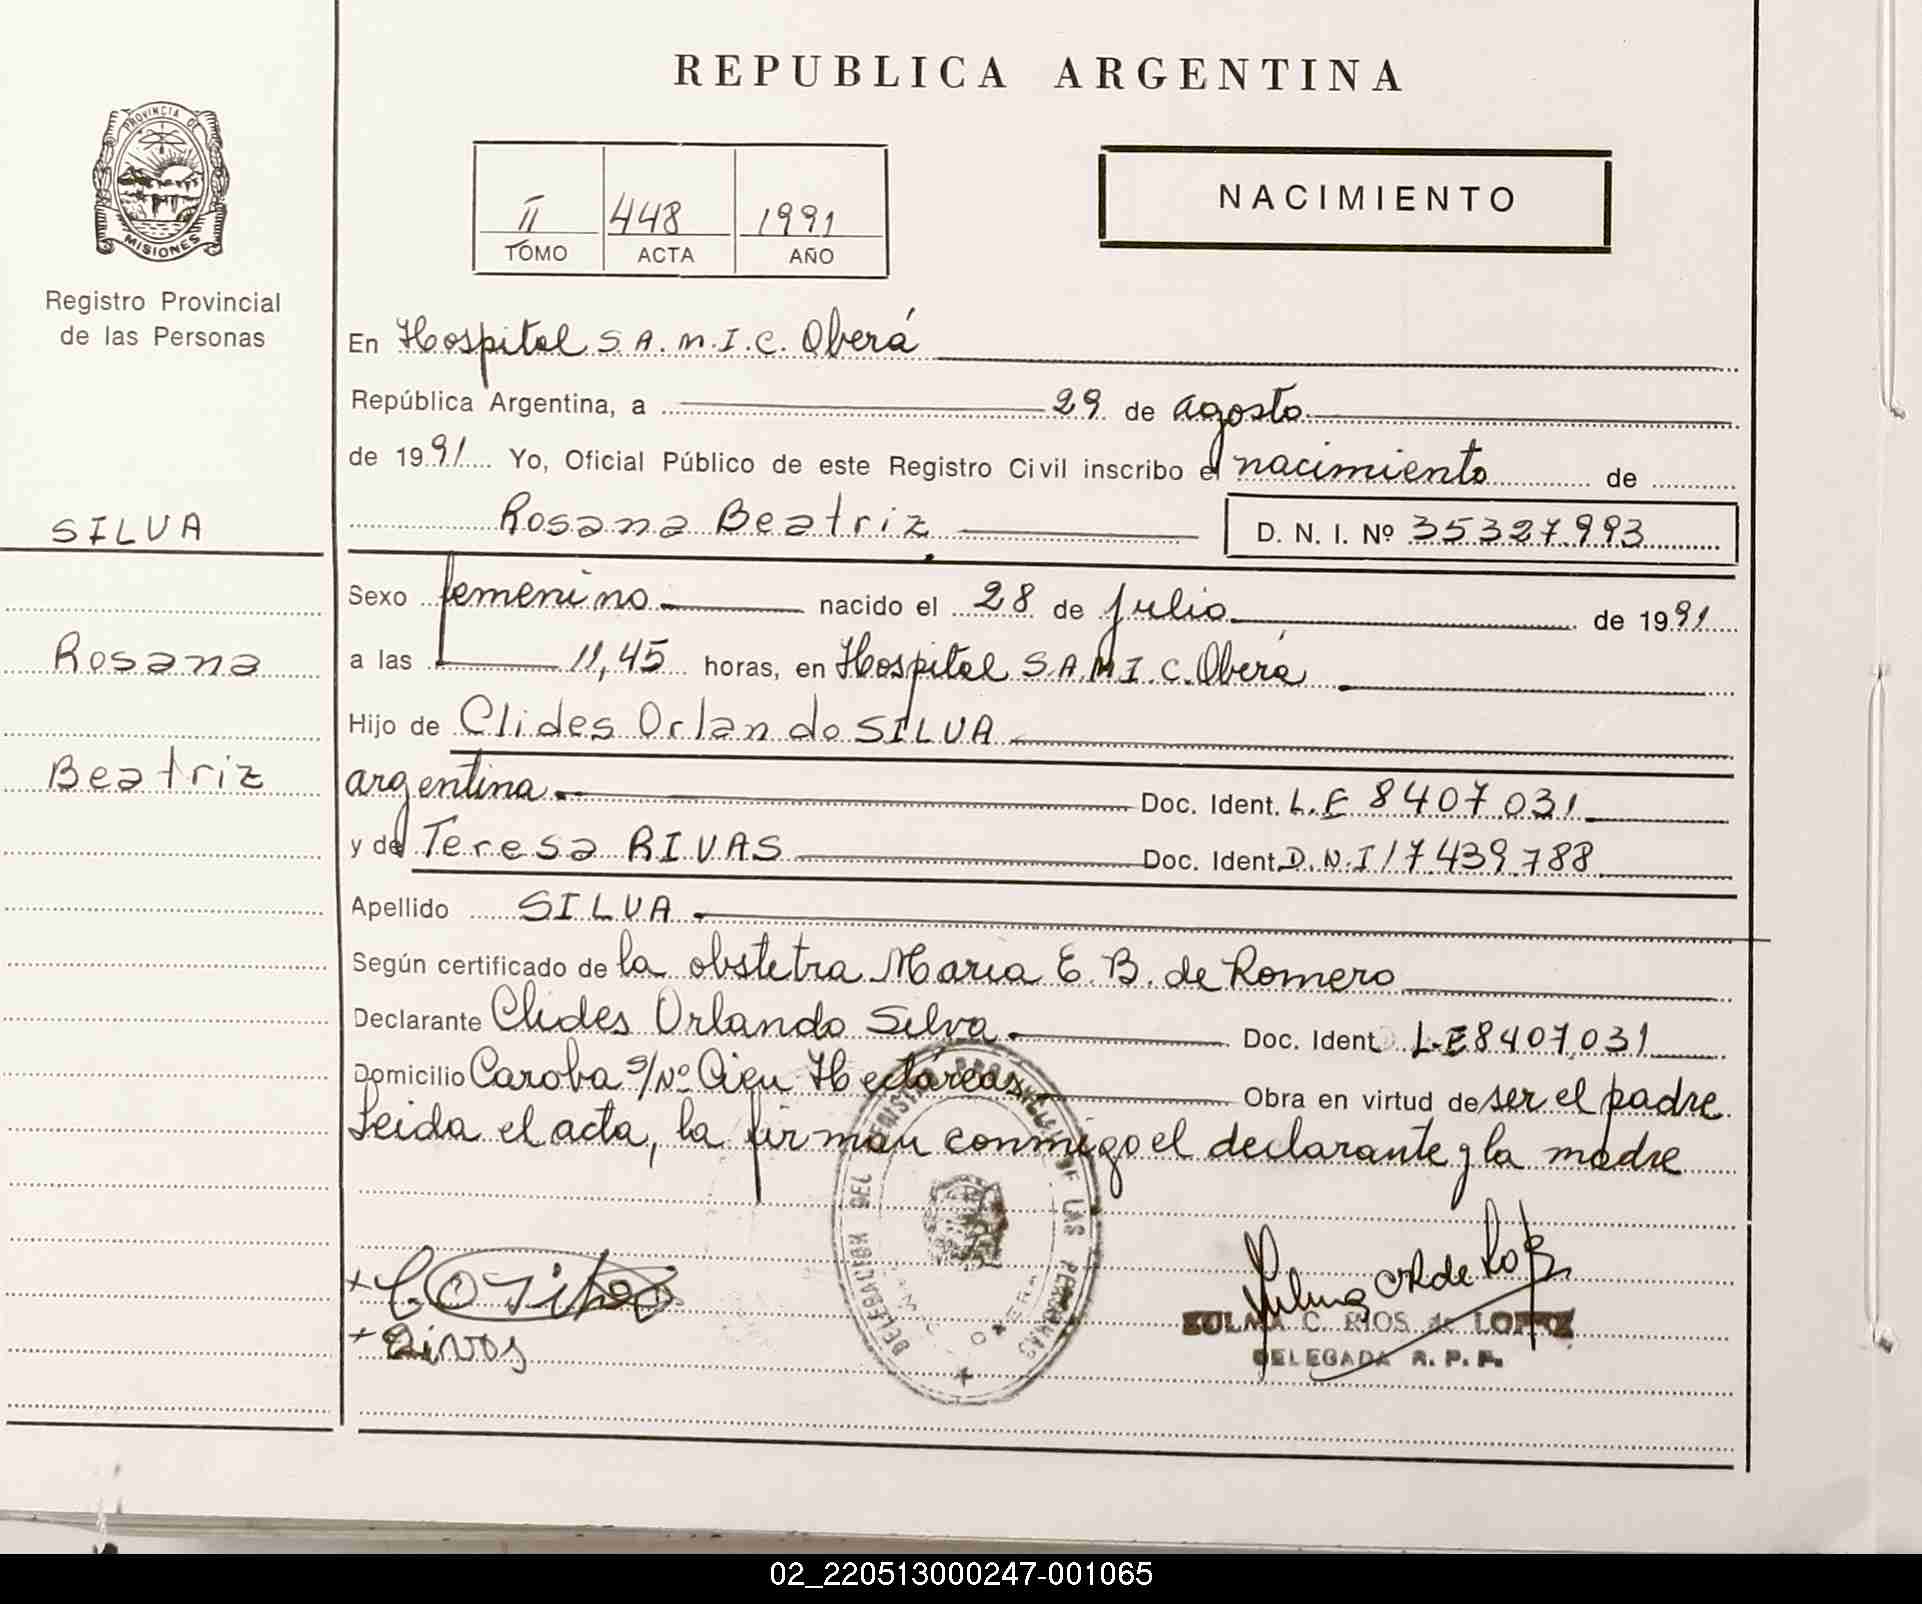 REPUBLICA ARGENTINA
PROVINCIA DE
MISIONES
Registro Provincial
de las Personas
NACIMIENTO
II 448 1991
TOMO ACTA AÑO
En Hospital S.A.M.I.C. Oberá
República Argentina, a 29 de agosto
de 1991 Yo, Oficial Público de este Registro Civil inscribo el nacimiento de
SILVA
Rosana Beatriz D. N. I. Nº 35.327.993
Sexo femenino nacido el 28 de julio de 1991
Rosana
a las 11,45 horas, en Hospital S.A.M.I.C. Oberá
Hijo de Clides Orlando SILVA
Beatriz
argentina Doc. Ident. L.E 8407.031
y de Teresa RIVAS Doc. Ident. D.N.I 17.439.788
Apellido SILVA
Según certificado de la obstetra Maria E. B. de Romero
Declarante Clides Orlando Silva Doc. Ident L.E 8407.031
Domicilio Caroba s/Nº Cien Hectáreas Obra en virtud de ser el padre
Leida el acta, la firman conmigo el declarante y la madre
DELEGACION DEL REGISTRO PROVINCIAL DE LAS PERSONAS
ZULMA C. RIOS de LOPEZ
DELEGADA R. P. P.
02_220513000247-001065